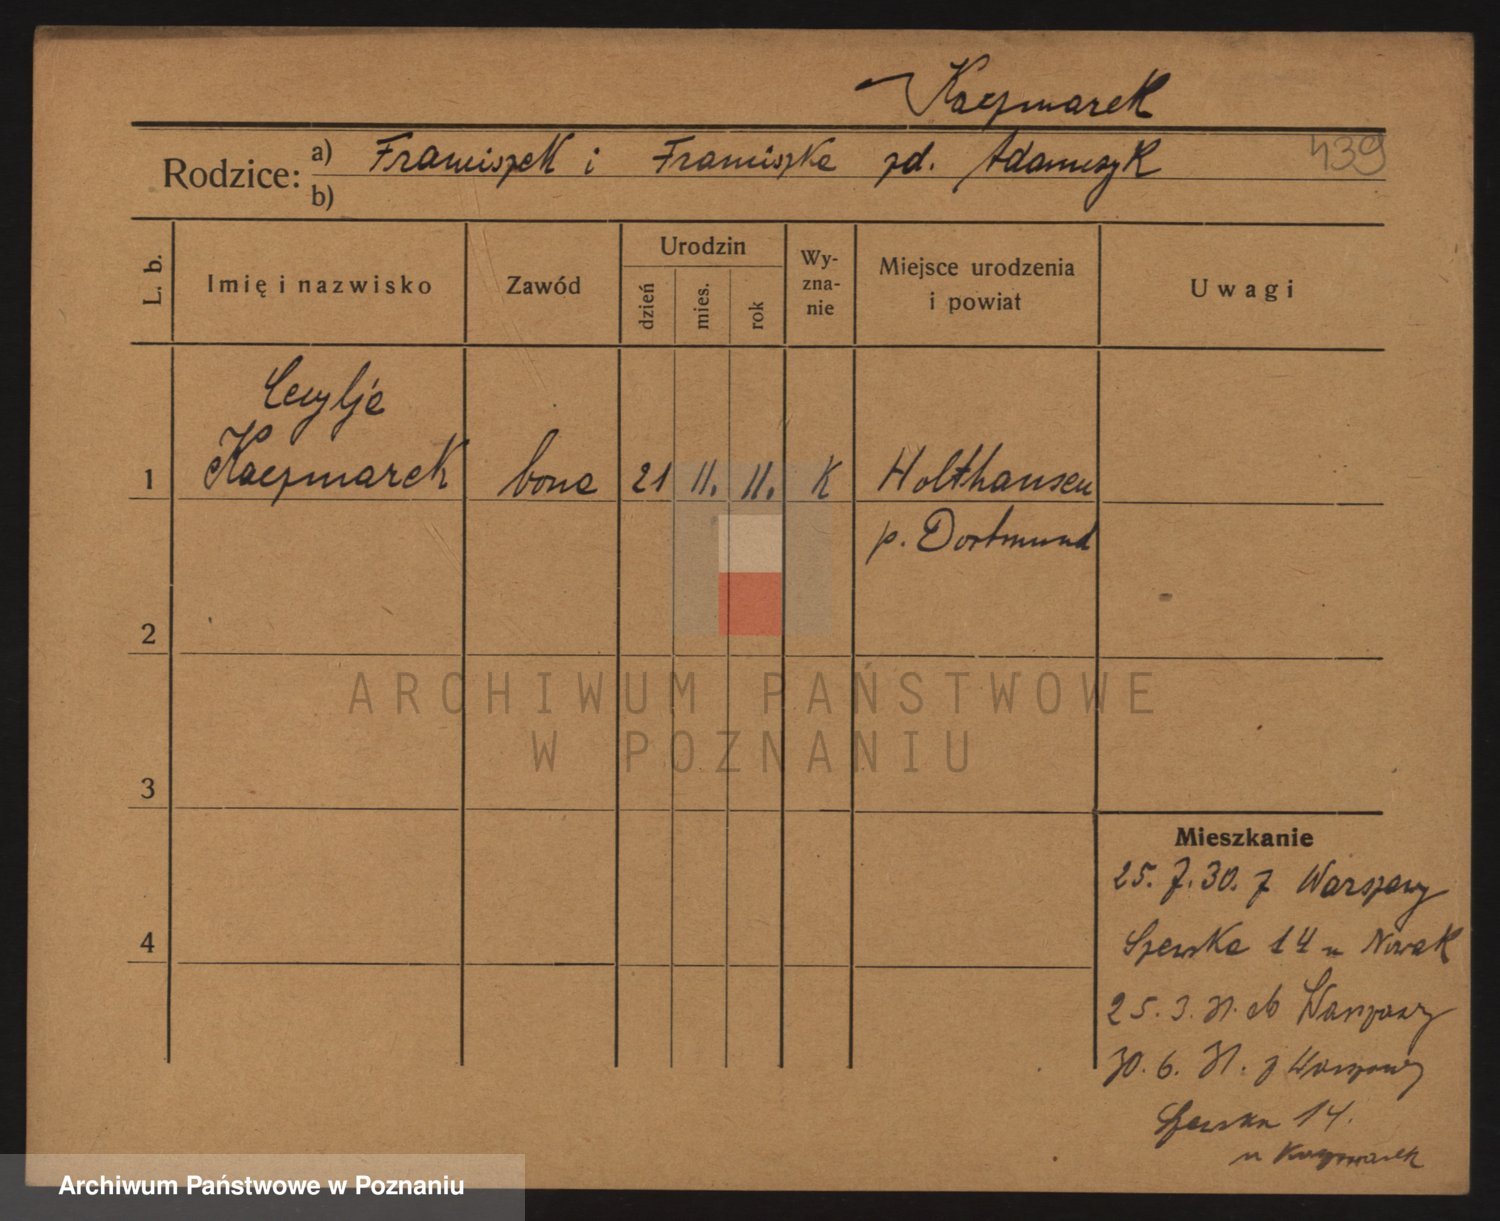 Kaczmarek
Rodzice: a) Franciszek i Franciszka zd. Adamczyk 439
b)
L. b. Imię i nazwisko Zawód Urodzin dzień mies. rok Wy-zna-nie Miejsce urodzenia i powiat Uwagi
Cecylja
1 Kaczmarek bona 21 11. 11. K Holthausen
p. Dortmund
2
ARCHIWUM PAŃSTWOWE
W POZNANIU
3
Mieszkanie
25. 7. 30. z Warszawy
4 Szewska 14 u Nowak
25. 3. 31. do Warszawy
30. 6. 31. z Warszawy
Szewska 14.
u Kaczmarek
Archiwum Państwowe w Poznaniu